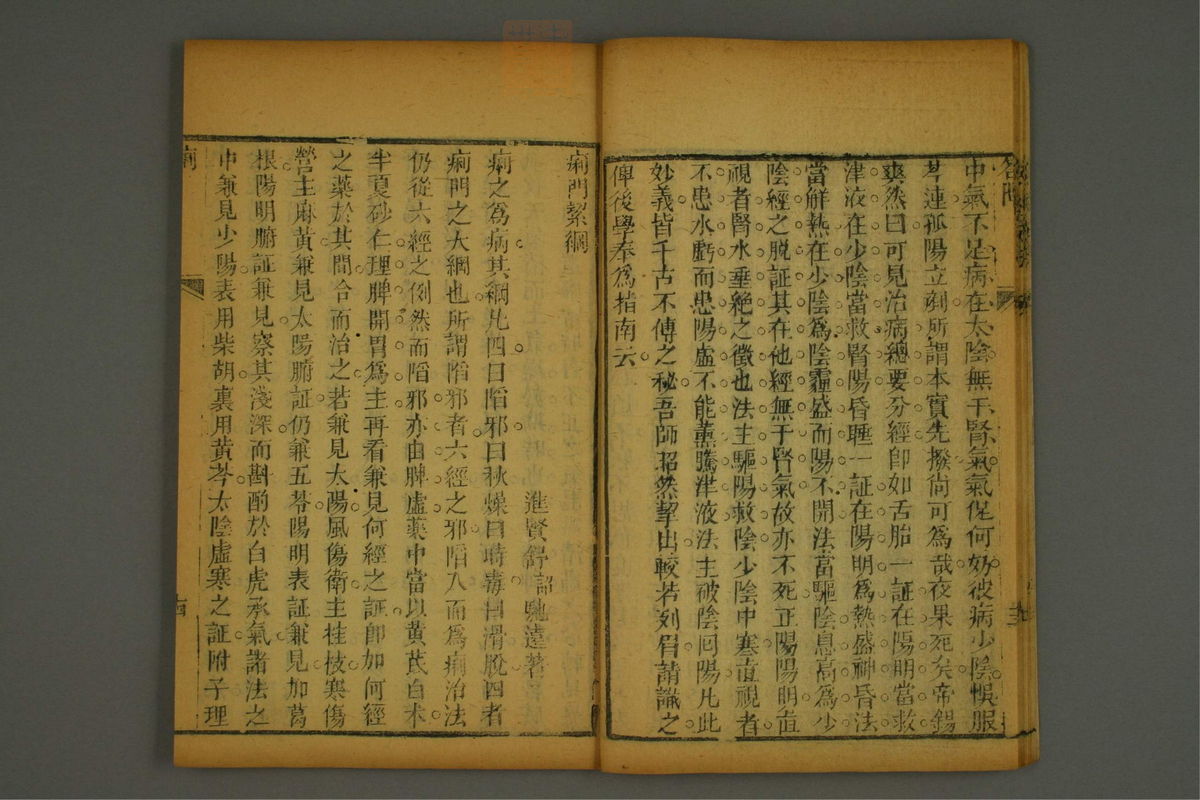 中氣不足病在太陰無干腎氣氣促何妨彼病少陰悞服
芩連孤陽立剷所謂本實先撥尙可爲哉夜果死矣帝錫
爽然曰可見治病總要分經卽如舌胎一証在陽明當救
津液在少陰當救腎陽昏睡一証在陽明爲熱盛神昏法
當解熱在少陰爲陰霾盛而陽不開法當驅陰息高爲少
陰經之脫証其在他經無干腎氣故亦不死正陽陽明直
視者腎水垂絶之徵也法主驅陽救陰少陰中寒直視者
不患水虧而患陽虛不能薰騰津液法主破陰回陽凡此
妙義皆千古不傳之秘吾師昭然挈出較若列眉請識之
俾後學奉爲指南云
痢門挈綱
進賢舒詔馳遠著
痢之爲病其綱凡四曰陷邪曰秋燥曰時毒曰滑脫四者
痢門之大綱也所謂陷邪者六經之邪陷入而爲痢治法
仍從六經之例然而陷邪亦由脾虛藥中當以黃芪白朮
半夏砂仁理脾開胃爲主再看兼見何經之証卽加何經
之藥於其間合而治之若兼見太陽風傷衛主桂枝寒傷
營主麻黃兼見太陽腑証仍兼五苓陽明表証兼見加葛
根陽明腑証兼見察其淺深而斟酌於白虎承氣諸法之
中兼見少陽表用柴胡裏用黃芩太陰虛寒之証附子理
痢
十四